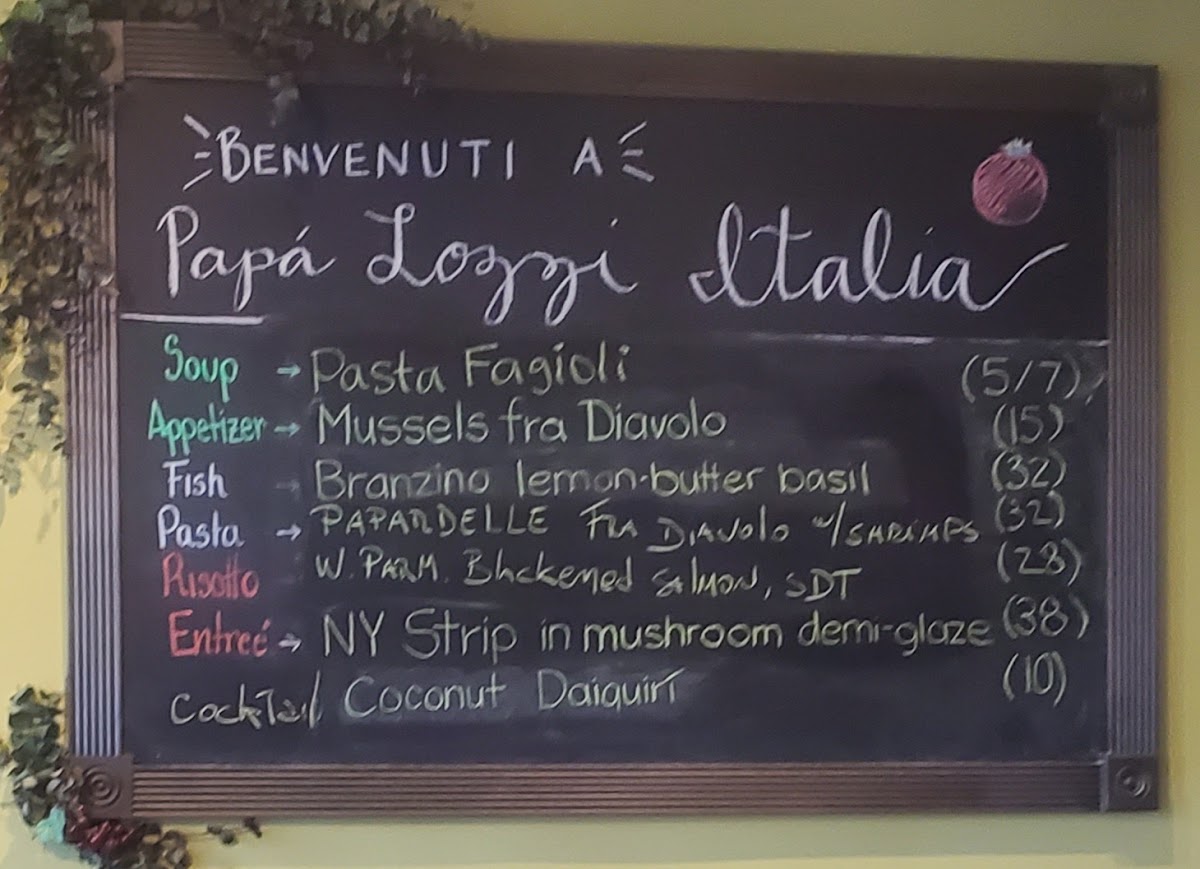 BENVENUTI A
Papá Lozzi Italia
Soup → Pasta Fagioli (5/7)
Appetizer → Mussels fra Diavolo (15)
Fish → Branzino lemon-butter basil (32)
Pasta → PAPARDELLE FRA DIAVOLO w/SHRIMPS (32)
Risotto W. PARM. Blackened Salmon, SDT (28)
Entreé → NY Strip in mushroom demi-glaze (38)
Cocktail Coconut Daiquiri (10)